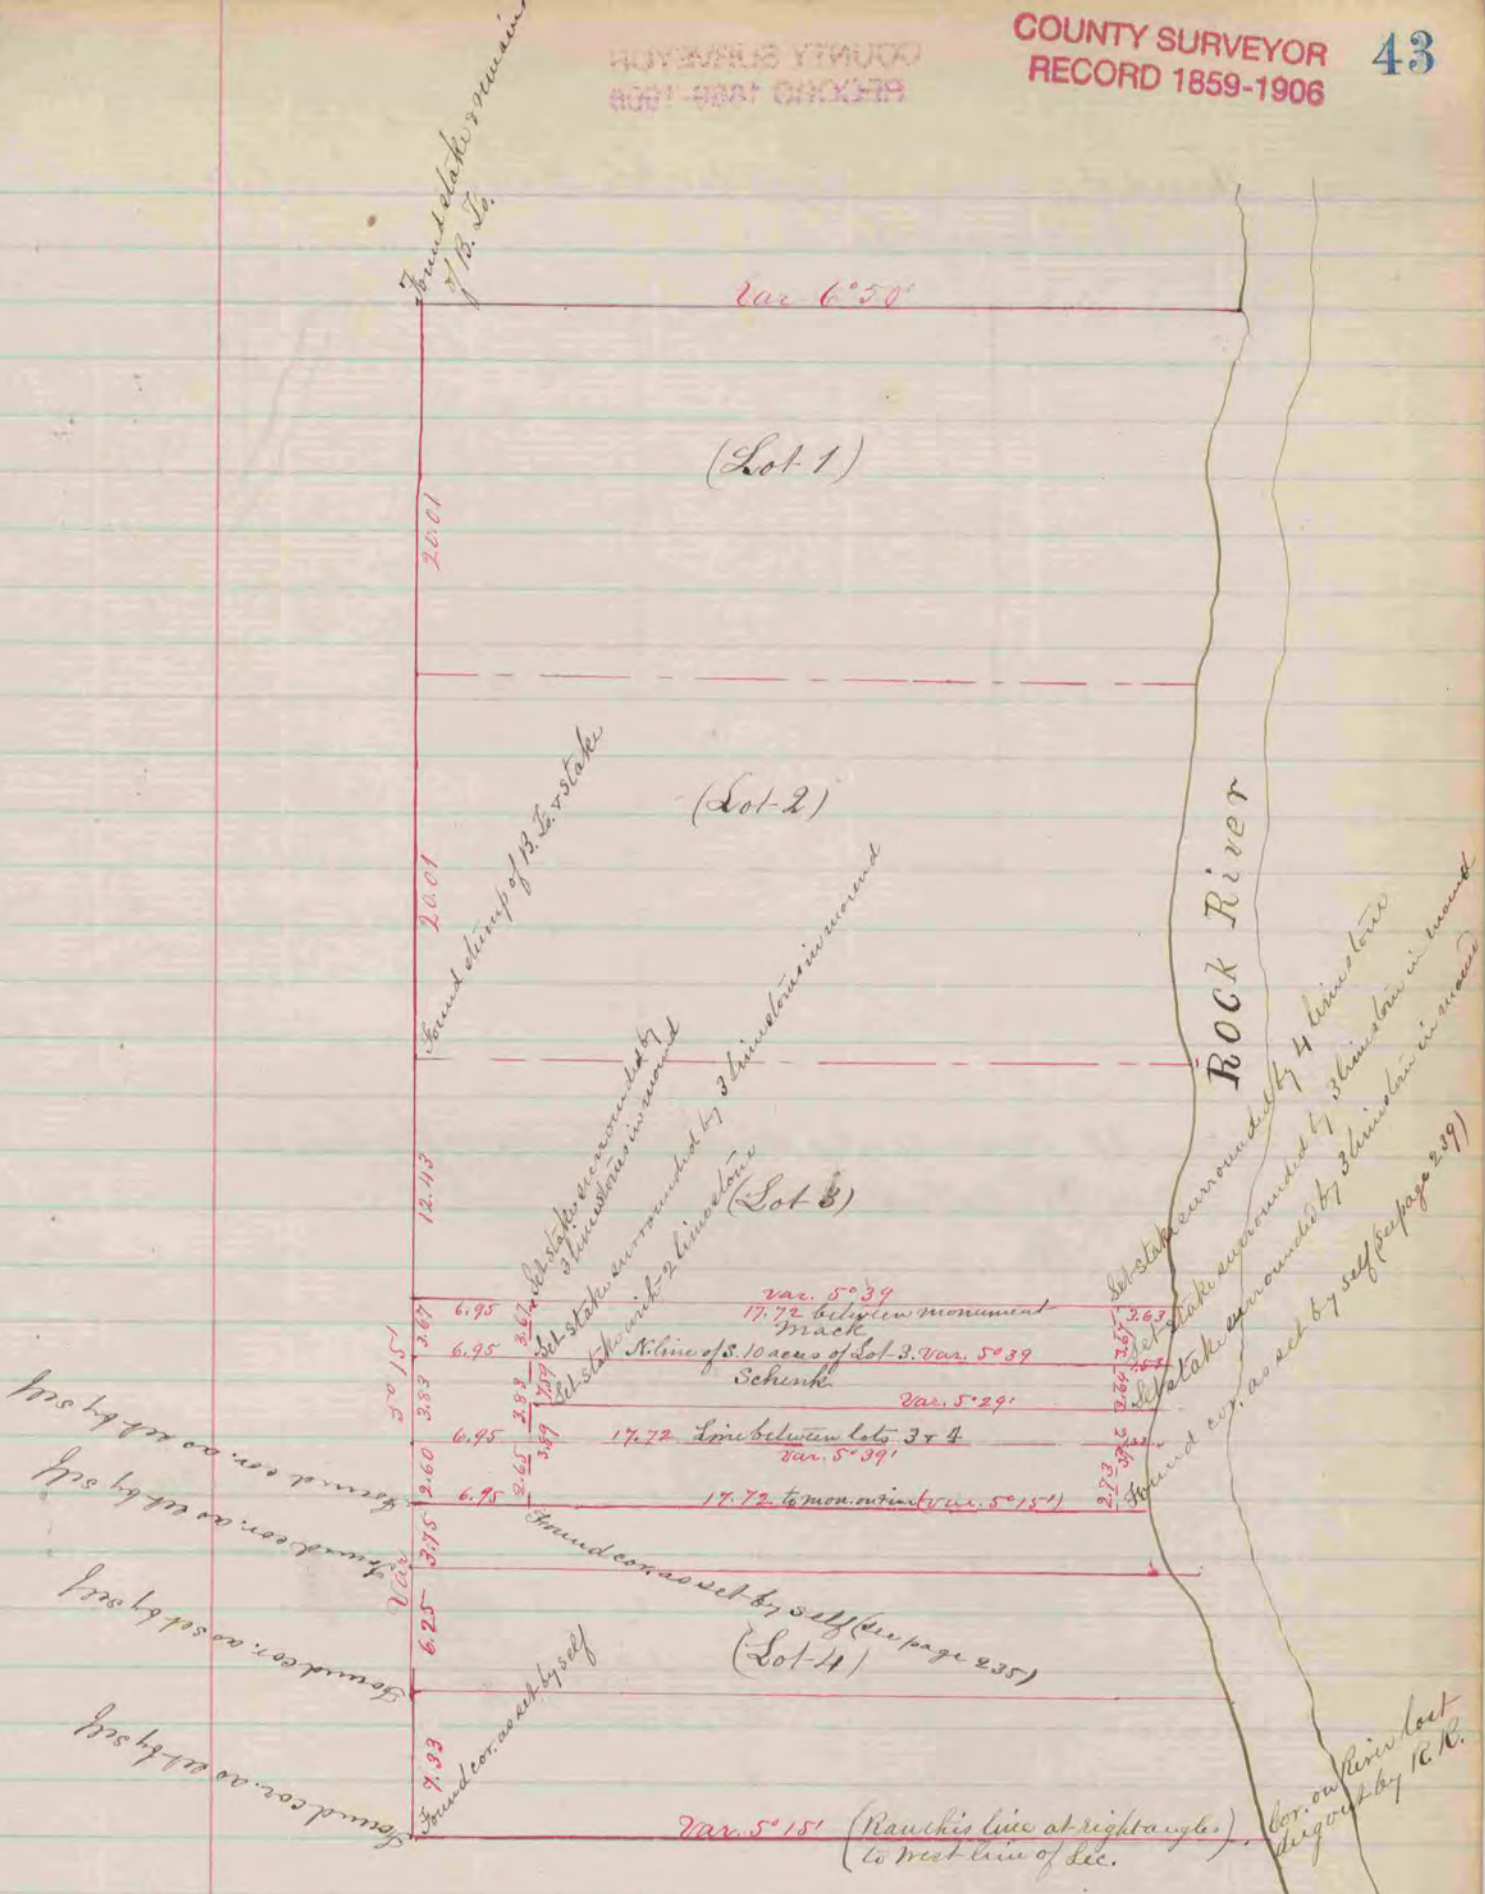 COUNTY SURVEYOR
RECORD 1859-1906
43
COUNTY SURVEYOR
RECORD 1859-1906
Found stake & remains
of B. To.
Var 6° 50'
(Lot 1)
20.01
(Lot 2)
20.01
Found stump of B. To. & stake
Rock River
12.43
(Lot 3)
Set stake surrounded by
3 limestones in mound
Set stake surrounded by 3 limestones in mound
Set stake with 2 limestone
Set stake surrounded by 4 limestone
Set stake surrounded by 3 limestone in mound
Set stake surrounded by 3 limestone in mound
Found cor. as set by self (see page 239)
Var. 5° 39
3.67
6.95
3.67
17.72 between monument
3.63
Mack
3.67
6.95
N. line of S. 10 acres of Lot 3. Var. 5° 39
Schenk
3.83
3.83
7.54
3.64
Var. 5° 29'
6.95
3.89
17.72 Line between lots 3 & 4
Var. 5° 39'
2.60
2.65
2.73
6.95
17.72 to mon. on riv (Var. 5° 15')
Var 5° 15'
3.75
6.25
Found cor. as set by self (see page 235)
(Lot 4)
Found cor. as set by self
Found cor. as set by self
Found cor. as set by self
Found cor. as set by self
7.33
Found cor. as set by self
Var. 5° 15'
(Ran this line at right angles)
to West line of Sec.
Cor. on River lost
dug out by R. R.